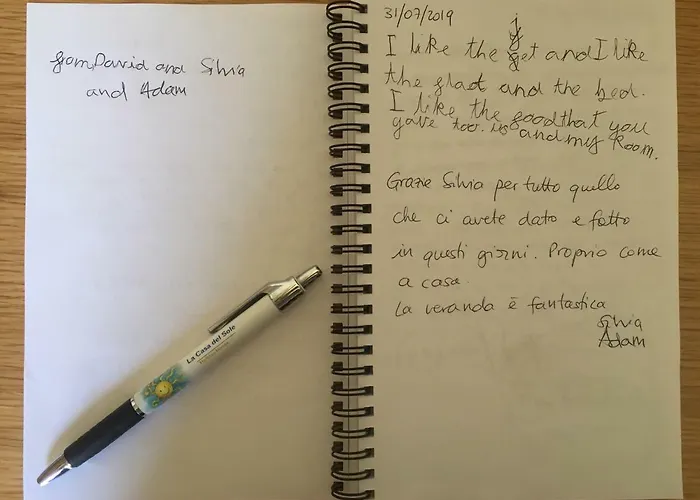 from David and Silvia
and Adam
La Casa del Sole
31/07/2019
I like the get and I like
the flad and the bed.
I like the food that you
gave too. us and my Room.
Grazie Silvia per tutto quello
che ci avete dato e fatto
in questi giorni. Proprio come
a casa.
La veranda è fantastica
Silvia
Adam